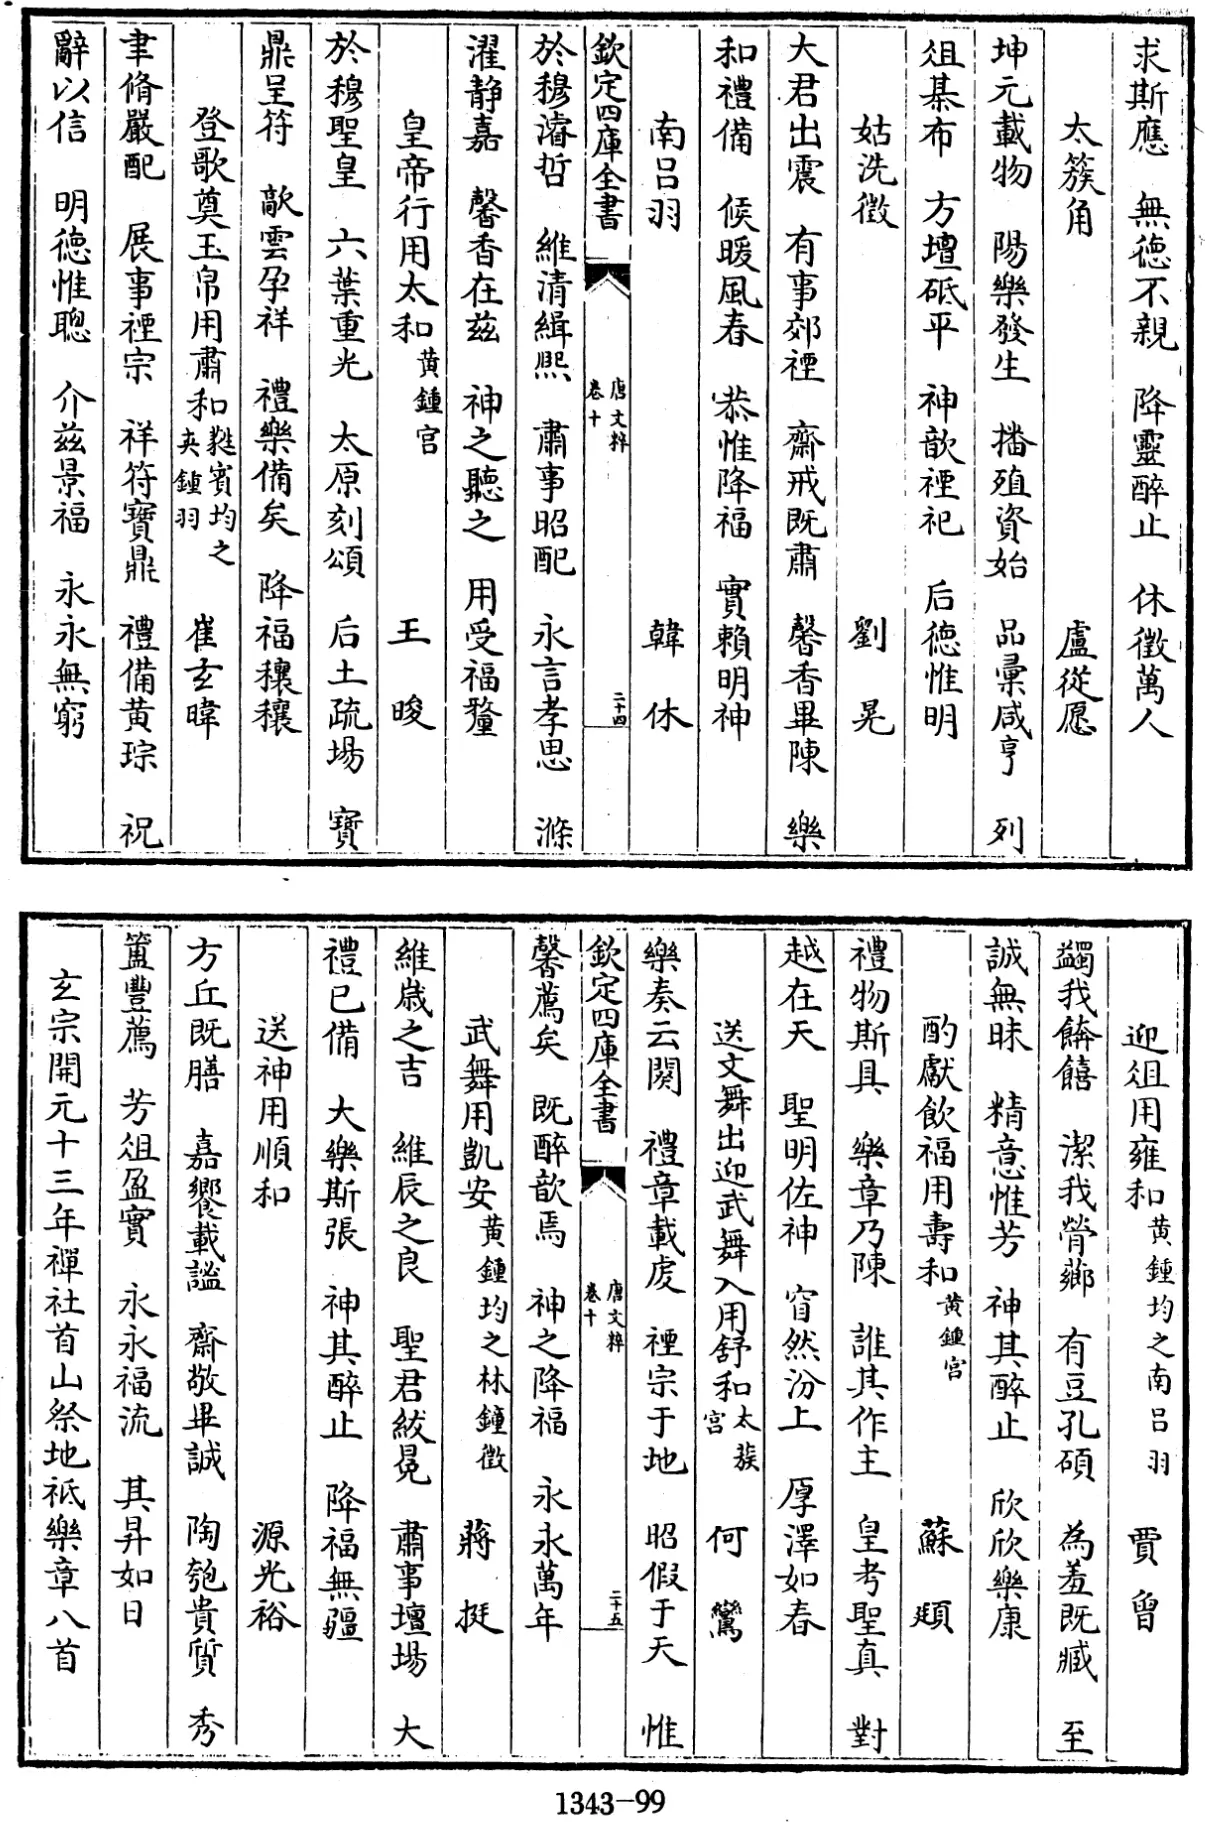 求斯應　無德不親　降靈醉止　休徵萬人
太簇角　盧從愿
坤元載物　陽樂發生　播殖資始　品彚咸亨　列
俎棊布　方壇砥平　神歆禋祀　后德惟明
姑洗徵　劉晃
大君出震　有事郊禋　齋戒既肅　馨香畢陳　樂
和禮備　候暖風春　恭惟降福　實賴明神
南呂羽　韓休
欽定四庫全書　唐文粹　卷十　二十四
於穆濬哲　維清緝熙　肅事昭配　永言孝思　滌
濯静嘉　馨香在兹　神之聽之　用受福釐
皇帝行用太和黄鍾宫　王晙
於穆聖皇　六葉重光　太原刻頌　后土疏場　寶
鼎呈符　歊雲孕祥　禮樂備矣　降福穰穰
登歌奠玉帛用肅和蕤賓均之夾鍾羽　崔玄暐
聿脩嚴配　展事禋宗　祥符寶鼎　禮備黄琮　祝
辭以信　明德惟聰　介兹景福　永永無窮
迎俎用雍和黄鍾均之南呂羽　賈曾
蠲我餴饎　潔我膋薌　有豆孔碩　為羞既臧　至
誠無昧　精意惟芳　神其醉止　欣欣樂康
酌獻飲福用壽和黄鍾宫　蘇頲
禮物斯具　樂章乃陳　誰其作主　皇考聖真　對
越在天　聖明佐神　窅然汾上　厚澤如春
送文舞出迎武舞入用舒和太蔟宫　何鸞
樂奏云闋　禮章載虔　禋宗于地　昭假于天　惟
欽定四庫全書　唐文粹　卷十　二十五
馨薦矣　既醉歆焉　神之降福　永永萬年
武舞用凱安黄鍾均之林鍾徵　蔣挺
維歲之吉　維辰之良　聖君紱冕　肅事壇場　大
禮已備　大樂斯張　神其醉止　降福無疆
送神用順和　源光裕
方丘既膳　嘉饗載謐　齋敬畢誠　陶匏貴質　秀
簠豐薦　芳俎盈實　永永福流　其昇如日
玄宗開元十三年禪社首山祭地祗樂章八首
1343-99